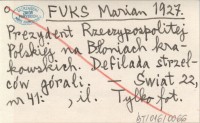 FUKS Marian 1927.
Prezydent Rzeczypospolitej
Polskiej na Błoniach kra-
kowskich. Defilada strzel-
ców górali. — Świat 22,
nr 41: , il. Tylko fot.